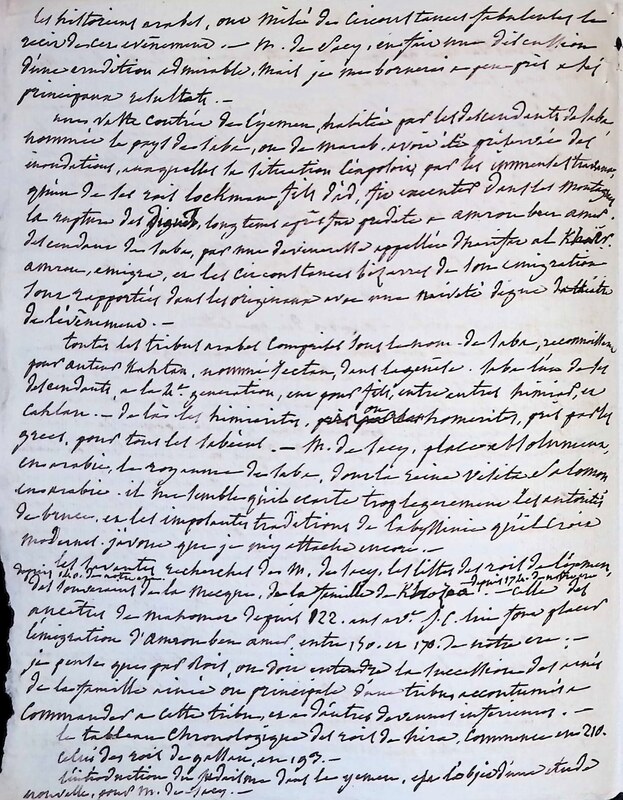 les historiens arabes, ont mêlé des circonstances fabuleuses le
récit de ces évènements. — M. de Sacy, en fait une discussion
d'une erudition admirable, mais je me bornerai a peu près a ses
principaux resultats. —
une vaste contrée de l'yemen, habitée par les descendants de Saba
nommée le pays de Saba, ou de mareb, avoit été préservée des
inondations, auxquelles la situation l'exposoit, par les immenses travaux
qu'un de ses rois Lockman fils d'ad, fit executer dans les montagnes
la rupture des digues, longtems après fut predite a amrou ben amer,
descendant de Saba, par une devineresse appellée dharifa al Khaïr.
amrou, emigra, et les circonstances bizarres de son emigration
sont rapportées dans les originaux avec une naïveté digne
de l'évènement. —
toutes les tribus arabes comprises sous le nom de Saba, reconnoissent
pour auteur Kahtan, nommé Jectan, dans la genèse. Saba l'un de ses
descendants, a la 2e. generation, eut pour fils, entre autres himiar, et
Cahlan. — de la les himiarites, ou homerites, pris par les
grecs, pour tous les sabéens. — M. de Sacy, place absolument,
en arabie, le royaume de Saba, dont la reine visita Salomon
en arabie. il me semble qu'il ecarte trop legerement les autorités
de bruce, et les importantes traditions de l'abyssinie qu'il croit
modernes. j'avoue que je m'y attache encore. —
les savantes recherches de M. de Sacy, les listes des rois de l'yemen,
depuis 140. de notre ere
des souverains de la mecque, de la famille de Khozaa depuis 174. de notre ere — celle des
ancetres de mahomet depuis 122. ans avt. J. C. lui font placer
l'émigration d'Amrou ben amer entre 150. et 170. de notre ere. —
je pense que par rois, on doit entendre la succession des ainés
de la famille ainée ou principale d'une tribu, accoutumés a
commander a cette tribu, et a d'autres devenues inferieures. —
le tableau chronologique des rois de hira, commence en 210.
celui des rois de gassan, en 193.
l'introduction du judaisme dans le yemen, est l'objet d'une etude
nouvelle, pour M. de Sacy. —